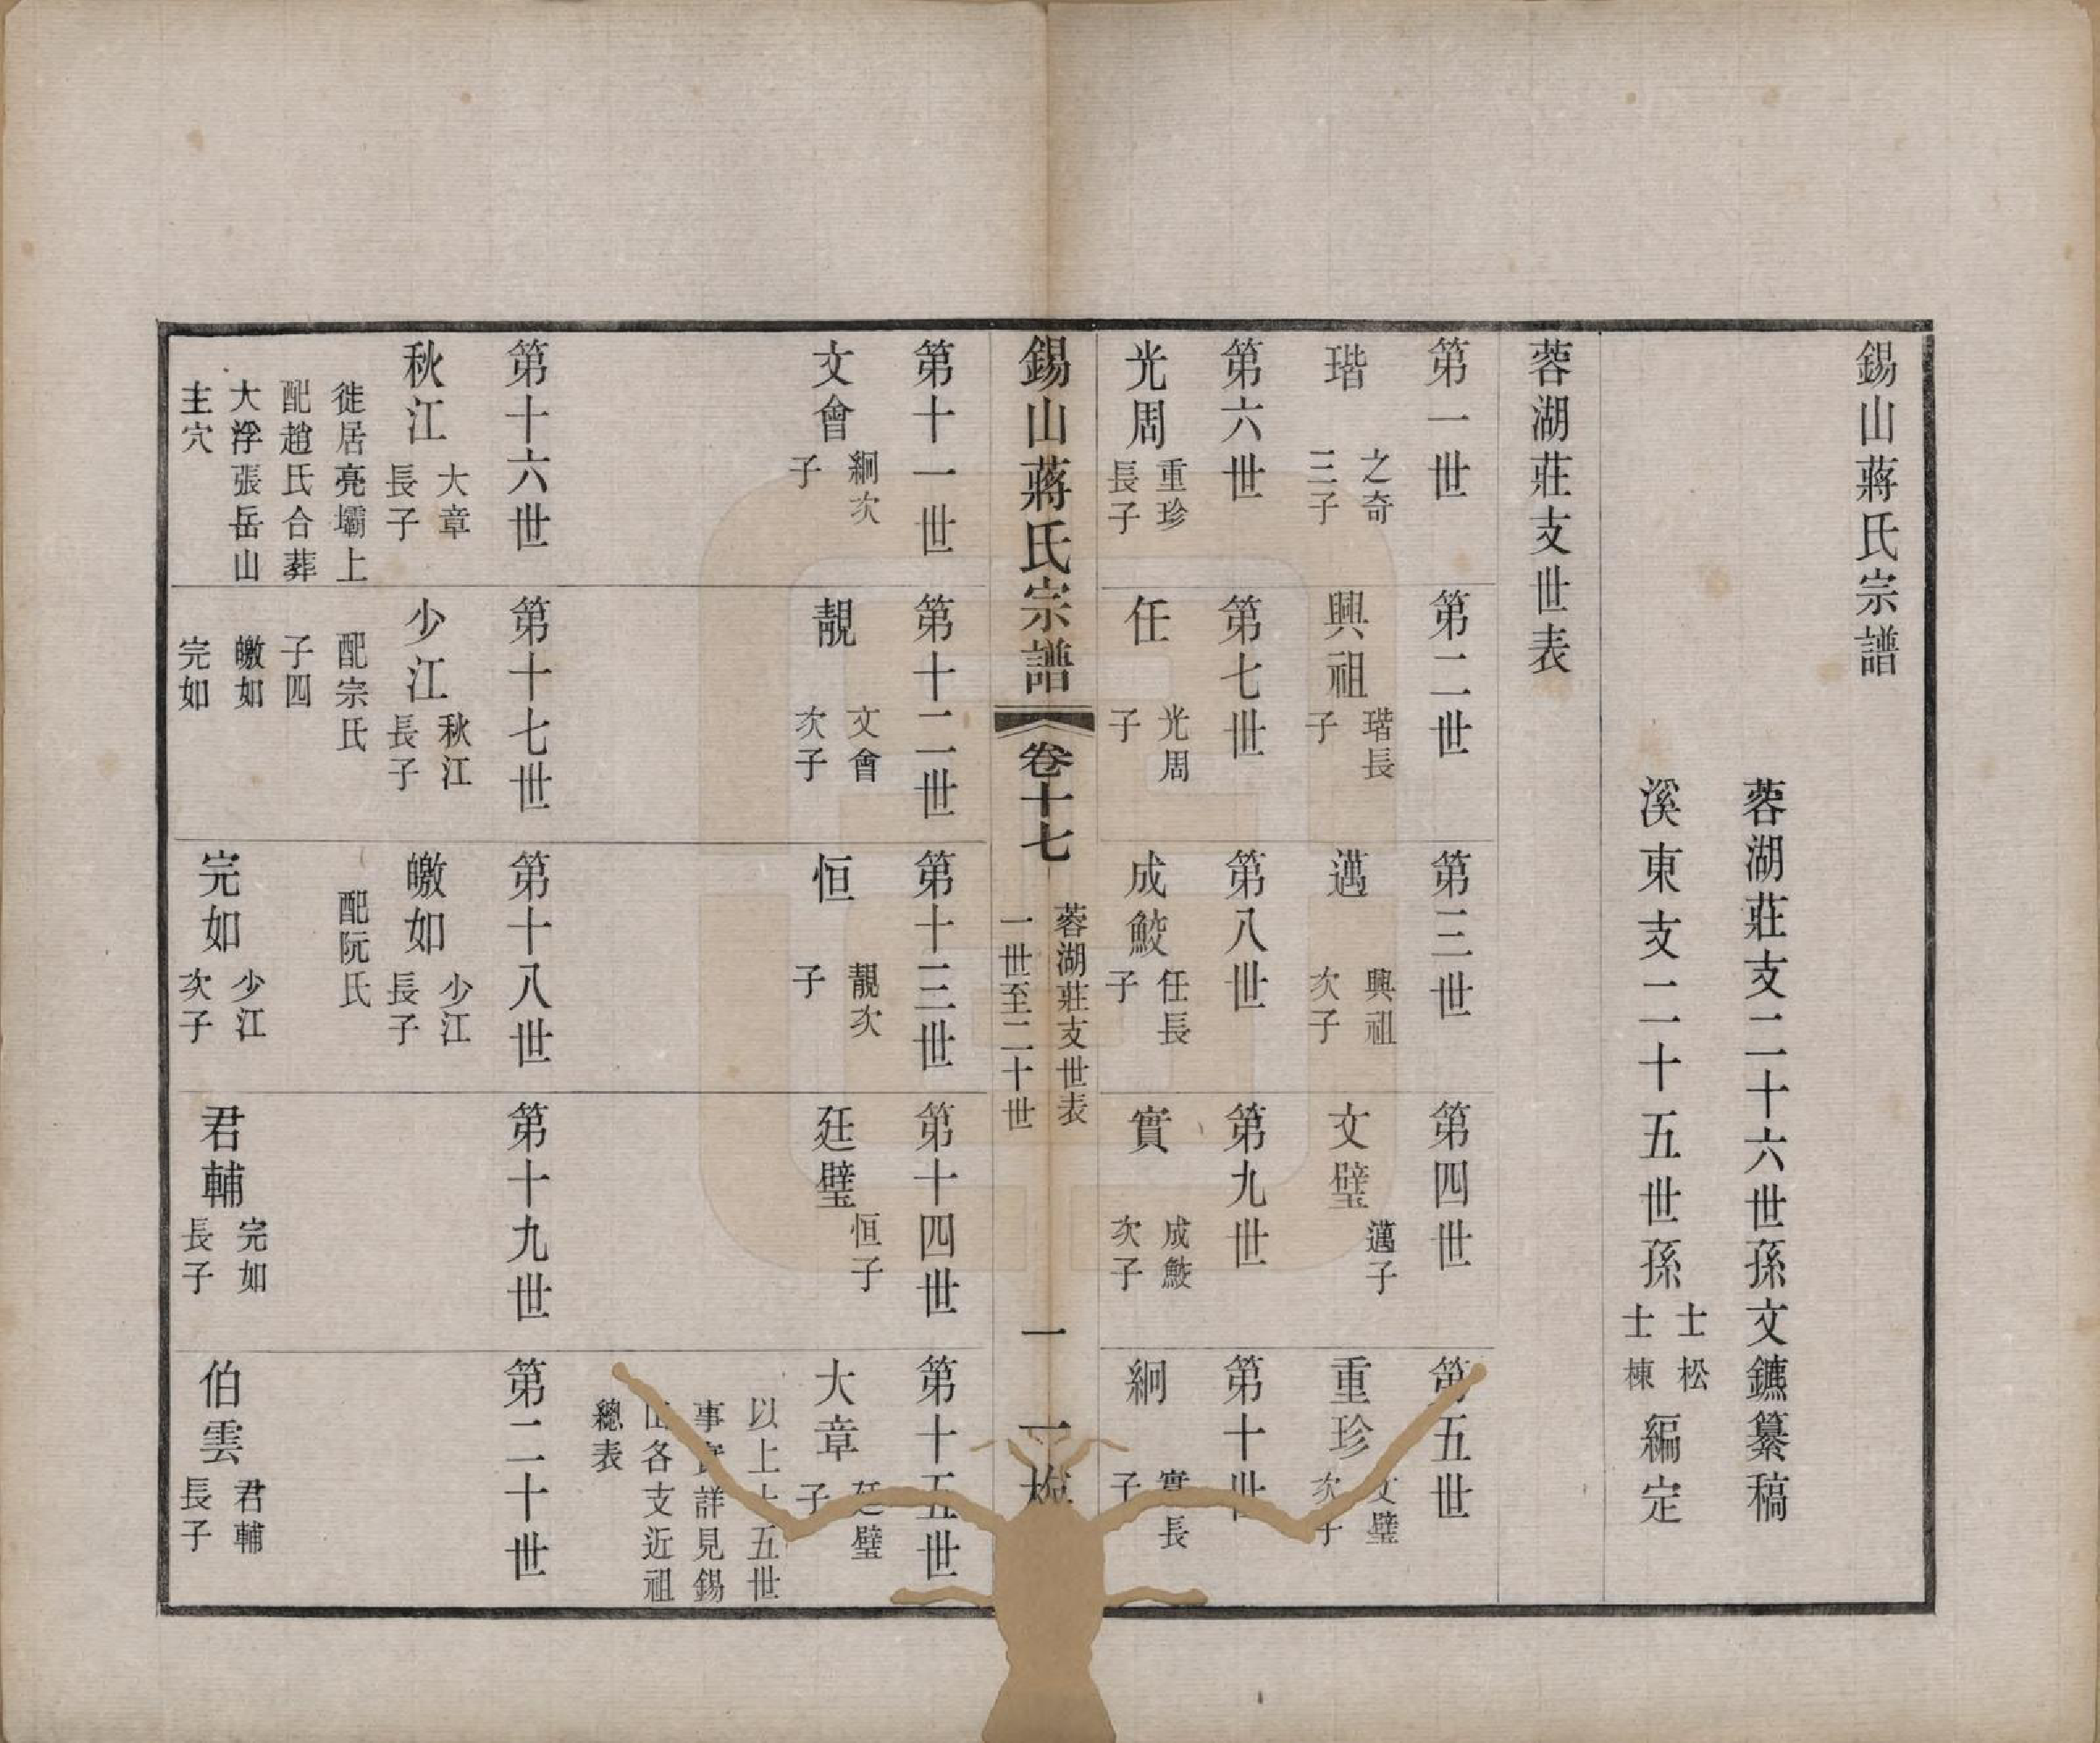 錫山蔣氏宗譜
蓉湖莊支二十六世孫文鑣纂稿
溪東支二十五世孫士松士棟編定
蓉湖莊支世表
第一世
第二世
第三世
第四世
第五世
瑎 之奇三子
興祖 瑎長子
邁 興祖次子
文璧 邁子
重珍 文璧次子
第六世
第七世
第八世
第九世
第十世
光周 重珍長子
任 光周子
成鮫 任長子
實 成鮫次子
絅 實長子
錫山蔣氏宗譜 卷十七 蓉湖莊支世表 一世至二十世 一 一
第十一世
第十二世
第十三世
第十四世
第十五世
文會 絅次子
靚 文會次子
恒 靚次子
廷璧 恒子
大章 廷璧子
以上十五世
事實詳見錫
山各支近祖
總表
第十六世
第十七世
第十八世
第十九世
第二十世
秋江 大章長子
徙居亮壩上
配趙氏合葬
大浮張岳山
主穴
少江 秋江長子
配宗氏
子四
皦如
完如
皦如 少江長子
配阮氏
完如 少江次子
君輔 完如長子
伯雲 君輔長子